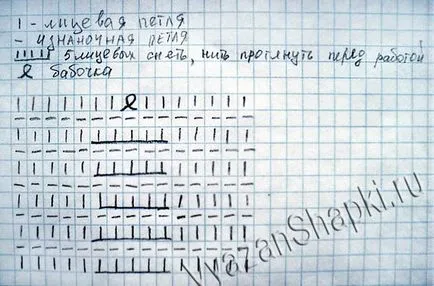 I - лицевая петля
- изнаночная петля
5 лицевых снеть, нить протянуть перед работой
бабочка
VyazanShapki.ru